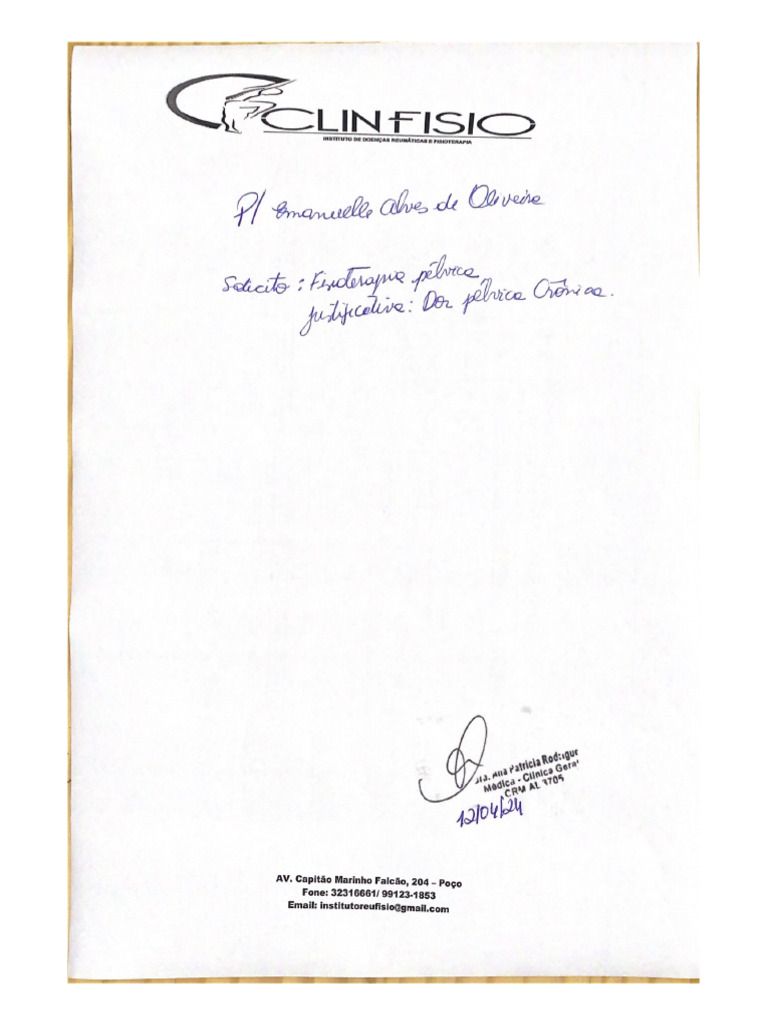 CLINFISIO
INSTITUTO DE DOENÇAS REUMÁTICAS E FISIOTERAPIA
P/ Emanuelle Alves de Oliveira
Solicito: Fisioterapia pélvica
Justificativa: Dor pélvica Crônica.
Dra. Ana Patricia Rodrigue
Médica - Clínica Geral
CRM AL 3705
12/04/24
AV. Capitão Marinho Falcão, 204 – Poço
Fone: 32316661/ 99123-1853
Email: institutoreufisio@gmail.com